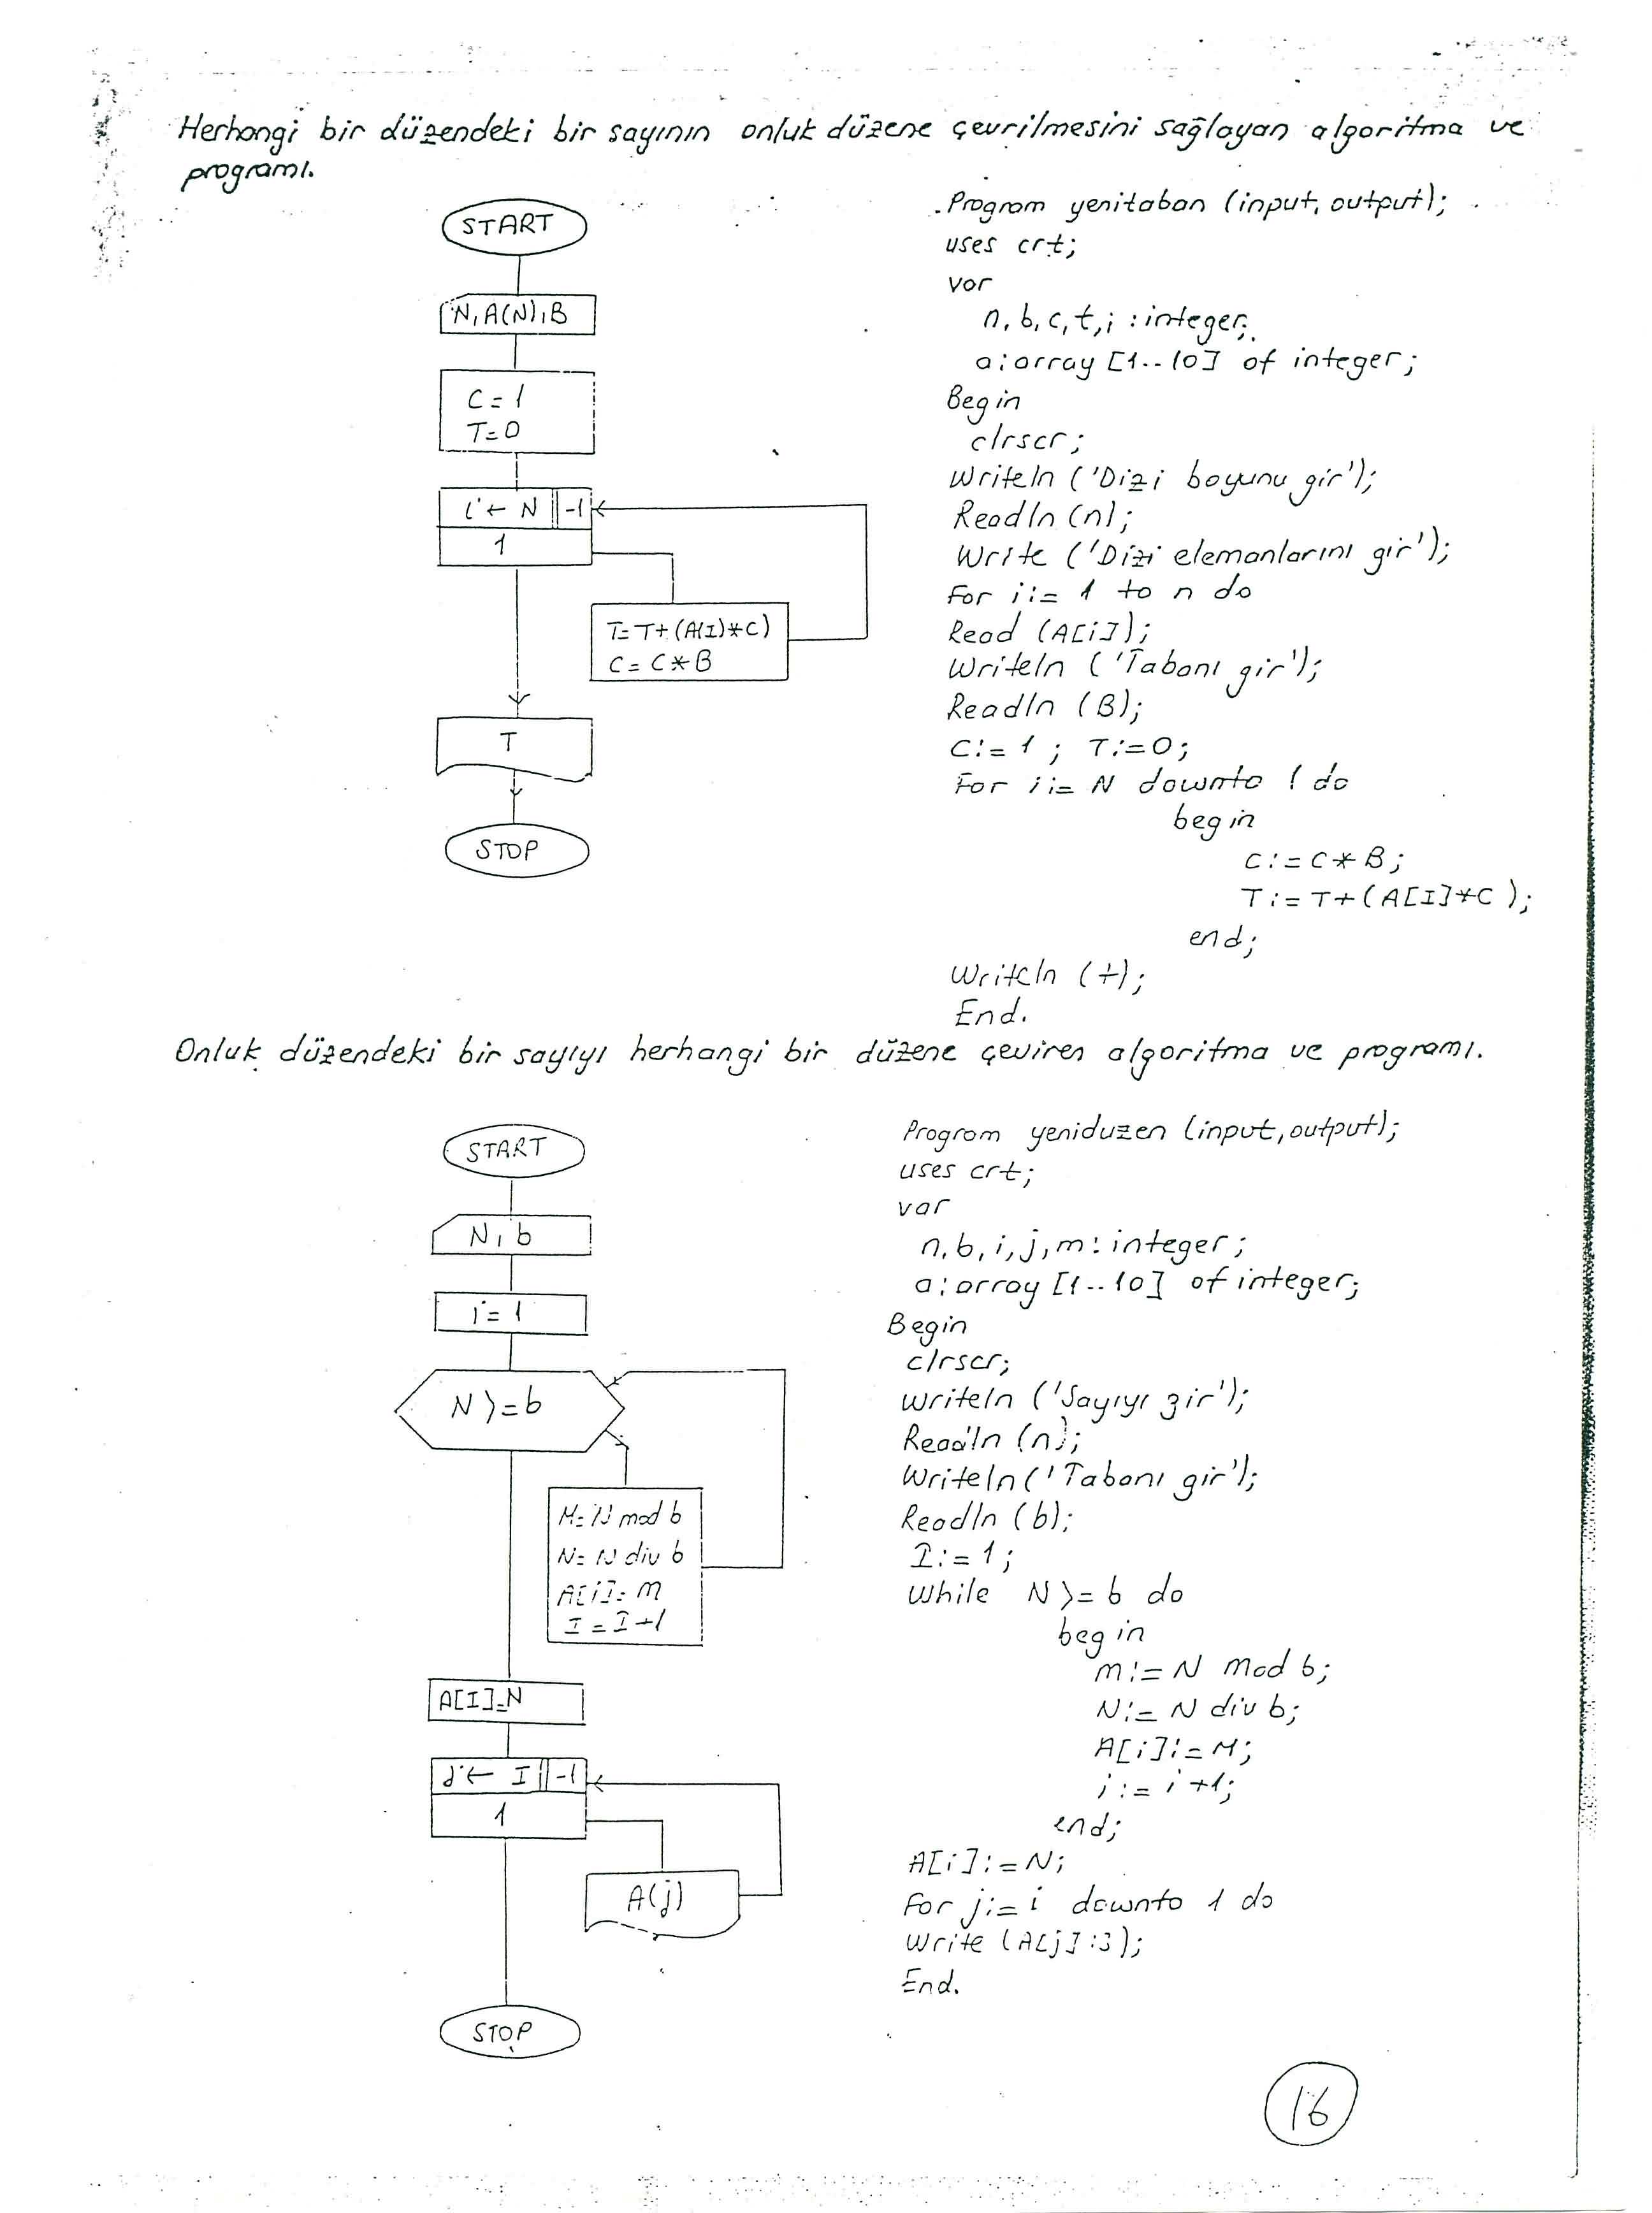 Herhangi bir düzendeki bir sayının onluk düzene çevrilmesini sağlayan algoritma ve
programı.
START
N, A(N), B
C = 1
T = 0
i ← N -1
1
T = T + (A(I) * C)
C = C * B
T
STOP
Program yenitaban (input, output);
uses crt;
var
n, b, c, t, i : integer;
a: array [1..10] of integer;
Begin
clrscr;
Writeln ('Dizi boyunu gir');
Readln (n);
Write ('Dizi elemanlarını gir');
For i := 1 to n do
Read (A[i]);
Writeln ('Tabanı gir');
Readln (B);
C := 1 ; T := 0;
For i := N downto 1 do
begin
C := C * B;
T := T + (A[I] * C );
end;
Writeln (t);
End.
Onluk düzendeki bir sayıyı herhangi bir düzene çeviren algoritma ve programı.
START
N, b
i = 1
N >= b
M = N mod b
N = N div b
A[i] = M
I = I + 1
A[I] = N
j ← I -1
1
A(j)
STOP
Program yeniduzen (input, output);
uses crt;
var
n, b, i, j, m : integer;
a: array [1..10] of integer;
Begin
clrscr;
Writeln ('Sayıyı gir');
Readln (n);
Writeln ('Tabanı gir');
Readln (b);
I := 1;
While N >= b do
begin
m := N mod b;
N := N div b;
A[i] := M;
i := i + 1;
end;
A[i] := N;
For j := i downto 1 do
Write (A[j]:3);
End.
16